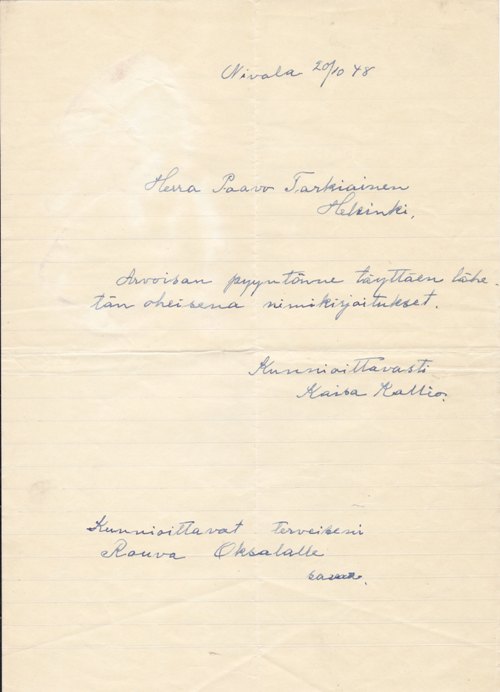 Nivala 20/10 48
Herra Paavo Tarkiainen
Helsinki.
Arvoisan pyyntönne täyttäen lähe-
tän oheisena nimikirjoitukset.
Kunnioittavasti
Kaisa Kallio.
Kunnioittavat terveiseni
Rouva Oksalalle